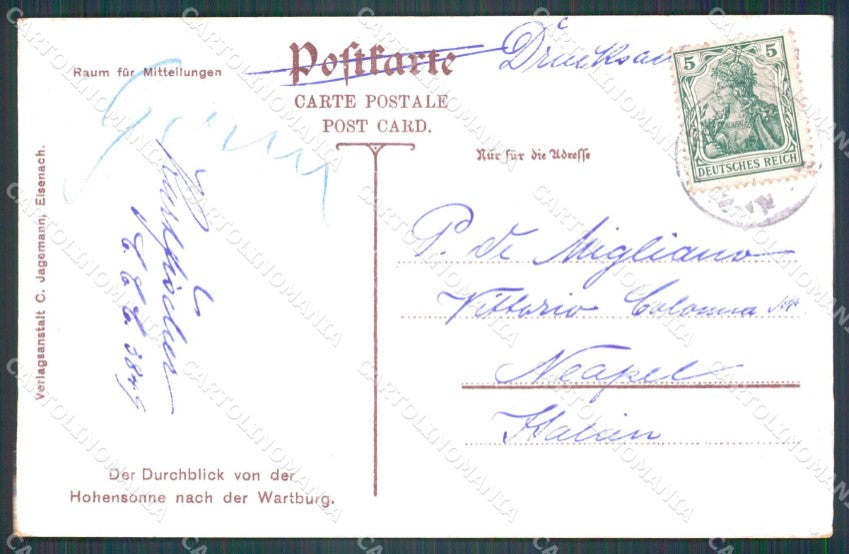 Raum für Mitteilungen
Postkarte
CARTE POSTALE
POST CARD.
5 5
DEUTSCHES REICH
Nur für die Adresse
P. de Migliano
Vittorio Colonna
Neapel
Italien
Verlagsanstalt C. Jagemann, Eisenach.
Der Durchblick von der
Hohensonne nach der Wartburg.
CARTOLINOMANIA